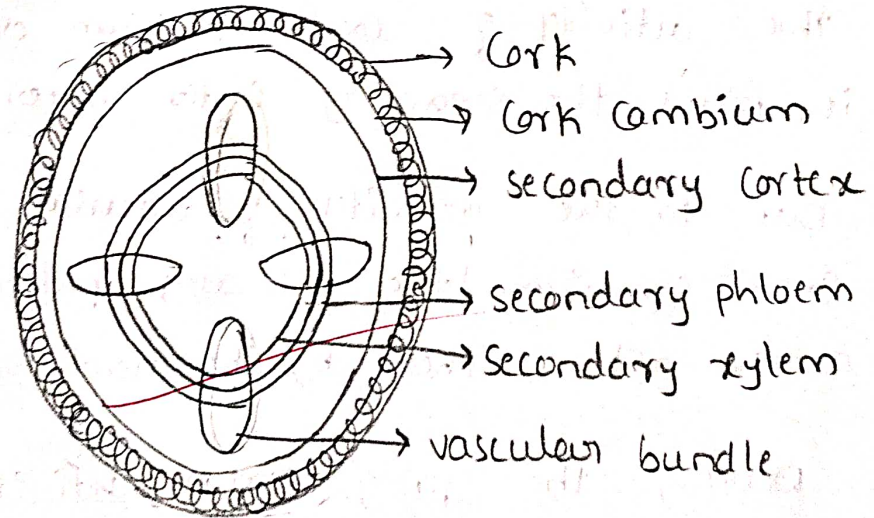 Cork
Cork Cambium
secondary cortex
secondary phloem
secondary xylem
vascular bundle